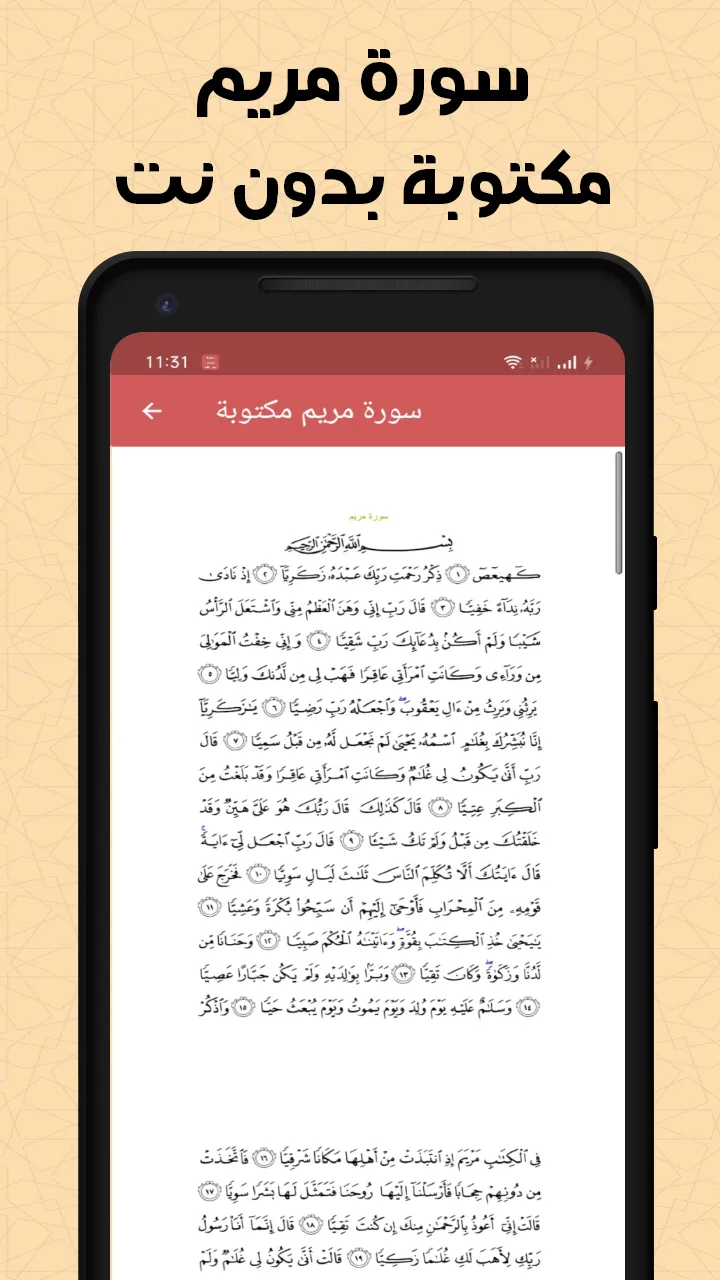 سورة مريم
مكتوبة بدون نت
11:31
سورة مريم مكتوبة
سورة مريم
بِسْمِ اللَّهِ الرَّحْمَٰنِ الرَّحِيمِ
كٓهيعٓصٓ ١ ذِكْرُ رَحْمَتِ رَبِّكَ عَبْدَهُۥ زَكَرِيَّآ ٢ إِذْ نَادَىٰ
رَبَّهُۥ نِدَآءً خَفِيًّا ٣ قَالَ رَبِّ إِنِّى وَهَنَ ٱلْعَظْمُ مِنِّى وَٱشْتَعَلَ ٱلرَّأْسُ
شَيْبًا وَلَمْ أَكُنۢ بِدُعَآئِكَ رَبِّ شَقِيًّا ٤ وَإِنِّى خِفْتُ ٱلْمَوَٰلِىَ
مِن وَرَآءِى وَكَانَتِ ٱمْرَأَتِى عَاقِرًا فَهَبْ لِى مِن لَّدُنكَ وَلِيًّا ٥
يَرِثُنِى وَيَرِثُ مِنْ ءَالِ يَعْقُوبَ ۖ وَٱجْعَلْهُ رَبِّ رَضِيًّا ٦ يَٰزَكَرِيَّآ
إِنَّا نُبَشِّرُكَ بِغُلَٰمٍ ٱسْمُهُۥ يَحْيَىٰ لَمْ نَجْعَل لَّهُۥ مِن قَبْلُ سَمِيًّا ٧ قَالَ
رَبِّ أَنَّىٰ يَكُونُ لِى غُلَٰمٌ وَكَانَتِ ٱمْرَأَتِى عَاقِرًا وَقَدْ بَلَغْتُ مِنَ
ٱلْكِبَرِ عِتِيًّا ٨ قَالَ كَذَٰلِكَ قَالَ رَبُّكَ هُوَ عَلَىَّ هَيِّنٌ وَقَدْ
خَلَقْتُكَ مِن قَبْلُ وَلَمْ تَكُ شَيْـًٔا ٩ قَالَ رَبِّ ٱجْعَل لِّىٓ ءَايَةً ۚ
قَالَ ءَايَتُكَ أَلَّا تُكَلِّمَ ٱلنَّاسَ ثَلَٰثَ لَيَالٍ سَوِيًّا ١٠ فَخَرَجَ عَلَىٰ
قَوْمِهِۦ مِنَ ٱلْمِحْرَابِ فَأَوْحَىٰٓ إِلَيْهِمْ أَن سَبِّحُوا۟ بُكْرَةً وَعَشِيًّا ١١
يَٰيَحْيَىٰ خُذِ ٱلْكِتَٰبَ بِقُوَّةٍ ۖ وَءَاتَيْنَٰهُ ٱلْحُكْمَ صَبِيًّا ١٢ وَحَنَانًا مِّن
لَّدُنَّا وَزَكَوٰةً ۖ وَكَانَ تَقِيًّا ١٣ وَبَرًّۢا بِوَٰلِدَيْهِ وَلَمْ يَكُن جَبَّارًا عَصِيًّا
١٤ وَسَلَٰمٌ عَلَيْهِ يَوْمَ وُلِدَ وَيَوْمَ يَمُوتُ وَيَوْمَ يُبْعَثُ حَيًّا ١٥ وَٱذْكُرْ
فِى ٱلْكِتَٰبِ مَرْيَمَ إِذِ ٱنتَبَذَتْ مِنْ أَهْلِهَا مَكَانًا شَرْقِيًّا ١٦ فَٱتَّخَذَتْ
مِن دُونِهِمْ حِجَابًا فَأَرْسَلْنَآ إِلَيْهَا رُوحَنَا فَتَمَثَّلَ لَهَا بَشَرًا سَوِيًّا ١٧
قَالَتْ إِنِّىٓ أَعُوذُ بِٱلرَّحْمَٰنِ مِنكَ إِن كُنتَ تَقِيًّا ١٨ قَالَ إِنَّمَآ أَنَا۠ رَسُولُ
رَبِّكِ لِأَهَبَ لَكِ غُلَٰمًا زَكِيًّا ١٩ قَالَتْ أَنَّىٰ يَكُونُ لِى غُلَٰمٌ وَلَمْ